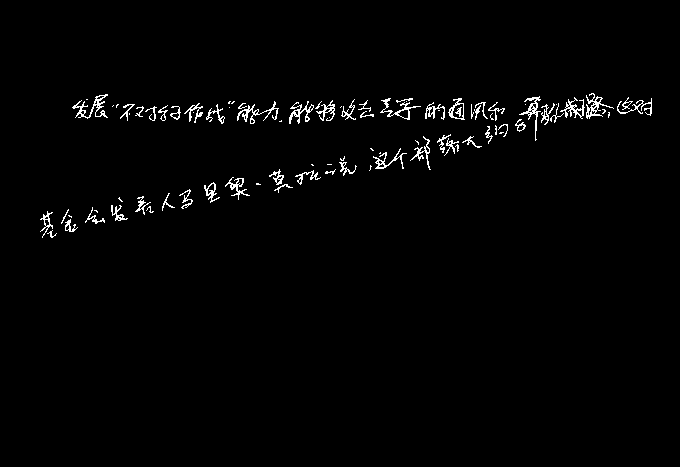 发展“不对称作战”能力,能够攻击美军的通讯和算机网路,这对
基金会发言人马里奥·莫拉说,这个部落大约8